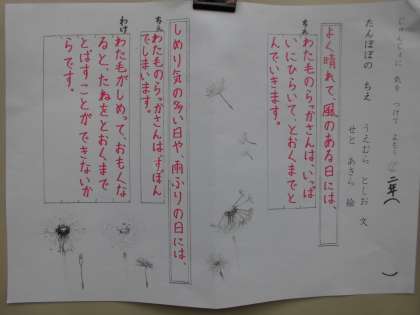 じゅんじょに 気を つけて よもう
二年( )
たんぽぽの ちえ
うえむら としお 文
せと あきら 絵
よく晴れて、風のある日には、
ちえ
わた毛のらっかさんは、いっぱ
いにひらいて、とおくまでと
んでいきます。
しめり気の多い日や、雨ふりの日には、
ちえ
わた毛のらっかさんは、すぼん
でしまいます。
わけ
わた毛がしめって、おもくな
ると、たねをとおくまで
とばすことができないか
らです。